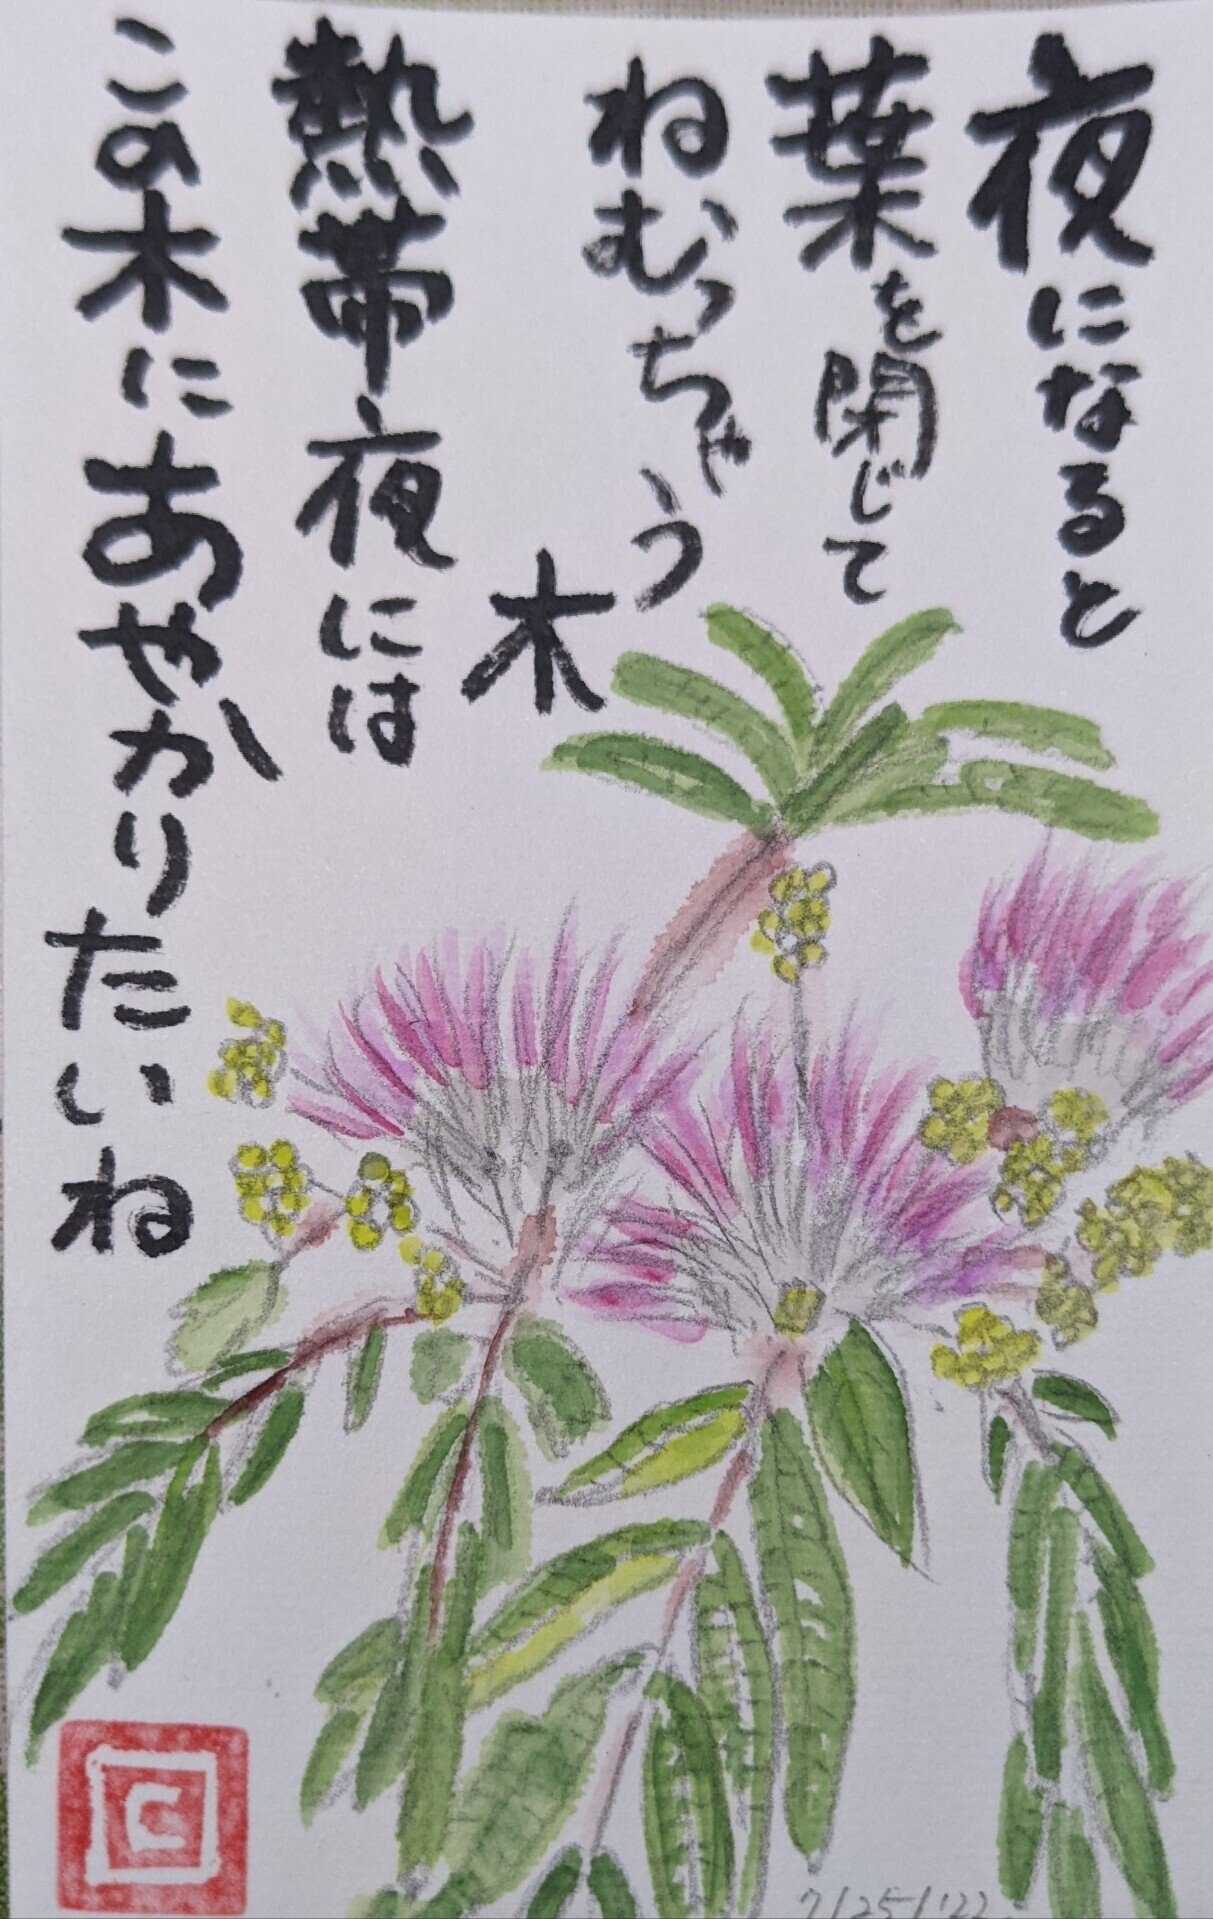 夜になると
葉を閉じて
ねむっちゃう
木
熱帯夜には
この木にあやかりたいね
7/25/'22